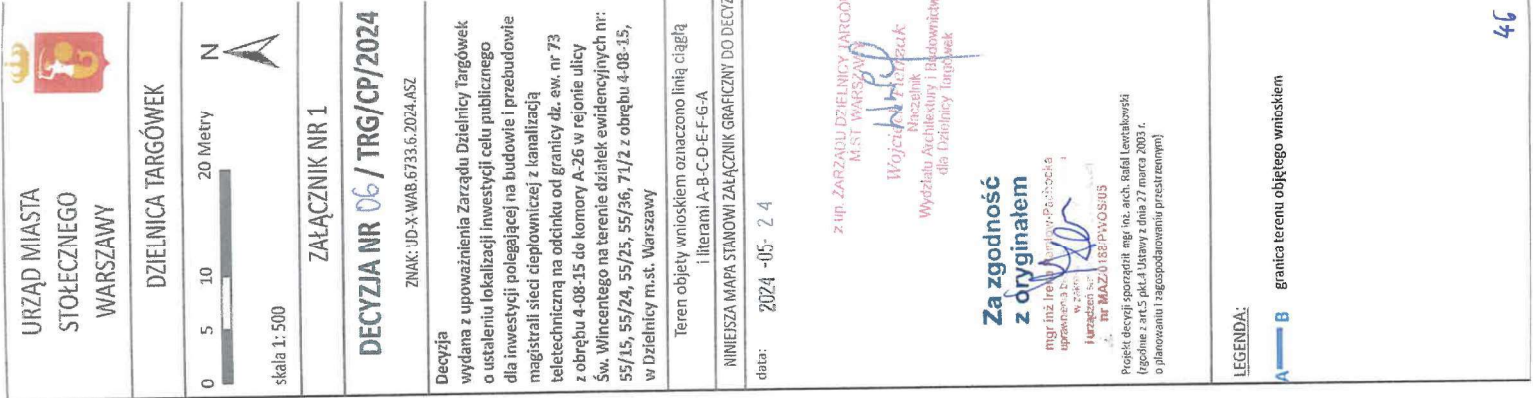 URZĄD MIASTA
STOŁECZNEGO
WARSZAWY
DZIELNICA TARGÓWEK
0 5 10 20 Metry
N
skala 1: 500
ZAŁĄCZNIK NR 1
DECYZJA NR 06 / TRG/CP/2024
ZNAK: UD-X-WAB.6733.6.2024.ASZ
Decyzja
wydana z upoważnienia Zarządu Dzielnicy Targówek
o ustaleniu lokalizacji inwestycji celu publicznego
dla inwestycji polegającej na budowie i przebudowie
magistrali sieci ciepłowniczej z kanalizacją
teletechniczną na odcinku od granicy dz. ew. nr 73
z obrębu 4-08-15 do komory A-26 w rejonie ulicy
Św. Wincentego na terenie działek ewidencyjnych nr:
55/15, 55/24, 55/25, 55/36, 71/2 z obrębu 4-08-15,
w Dzielnicy m.st. Warszawy
Teren objety wnioskiem oznaczono linią ciągłą
i literami A-B-C-D-E-F-G-A
NINIEJSZA MAPA STANOWI ZAŁĄCZNIK GRAFICZNY DO DECYZ
data: 2024 -05- 24
z up. ZARZĄDU DZIELNICY TARGÓW
M.ST. WARSZAWY
Wojciech Pietrzak
Naczelnik
Wydziału Architektury i Budownictw
dla Dzielnicy Targówek
Za zgodność
z oryginałem
mgr inż
uprawnienia
w zakr
i urządzeń
nr MAZ/0188/PWOS/05
Projekt decyzji sporządził mgr inż. arch. Rafał Lewtakowski
(zgodnie z art.5 pkt.4 Ustawy z dnia 27 marca 2003 r.
o planowaniu i zagospodarowaniu przestrzennym)
LEGENDA:
A B granica terenu objętego wnioskiem
46